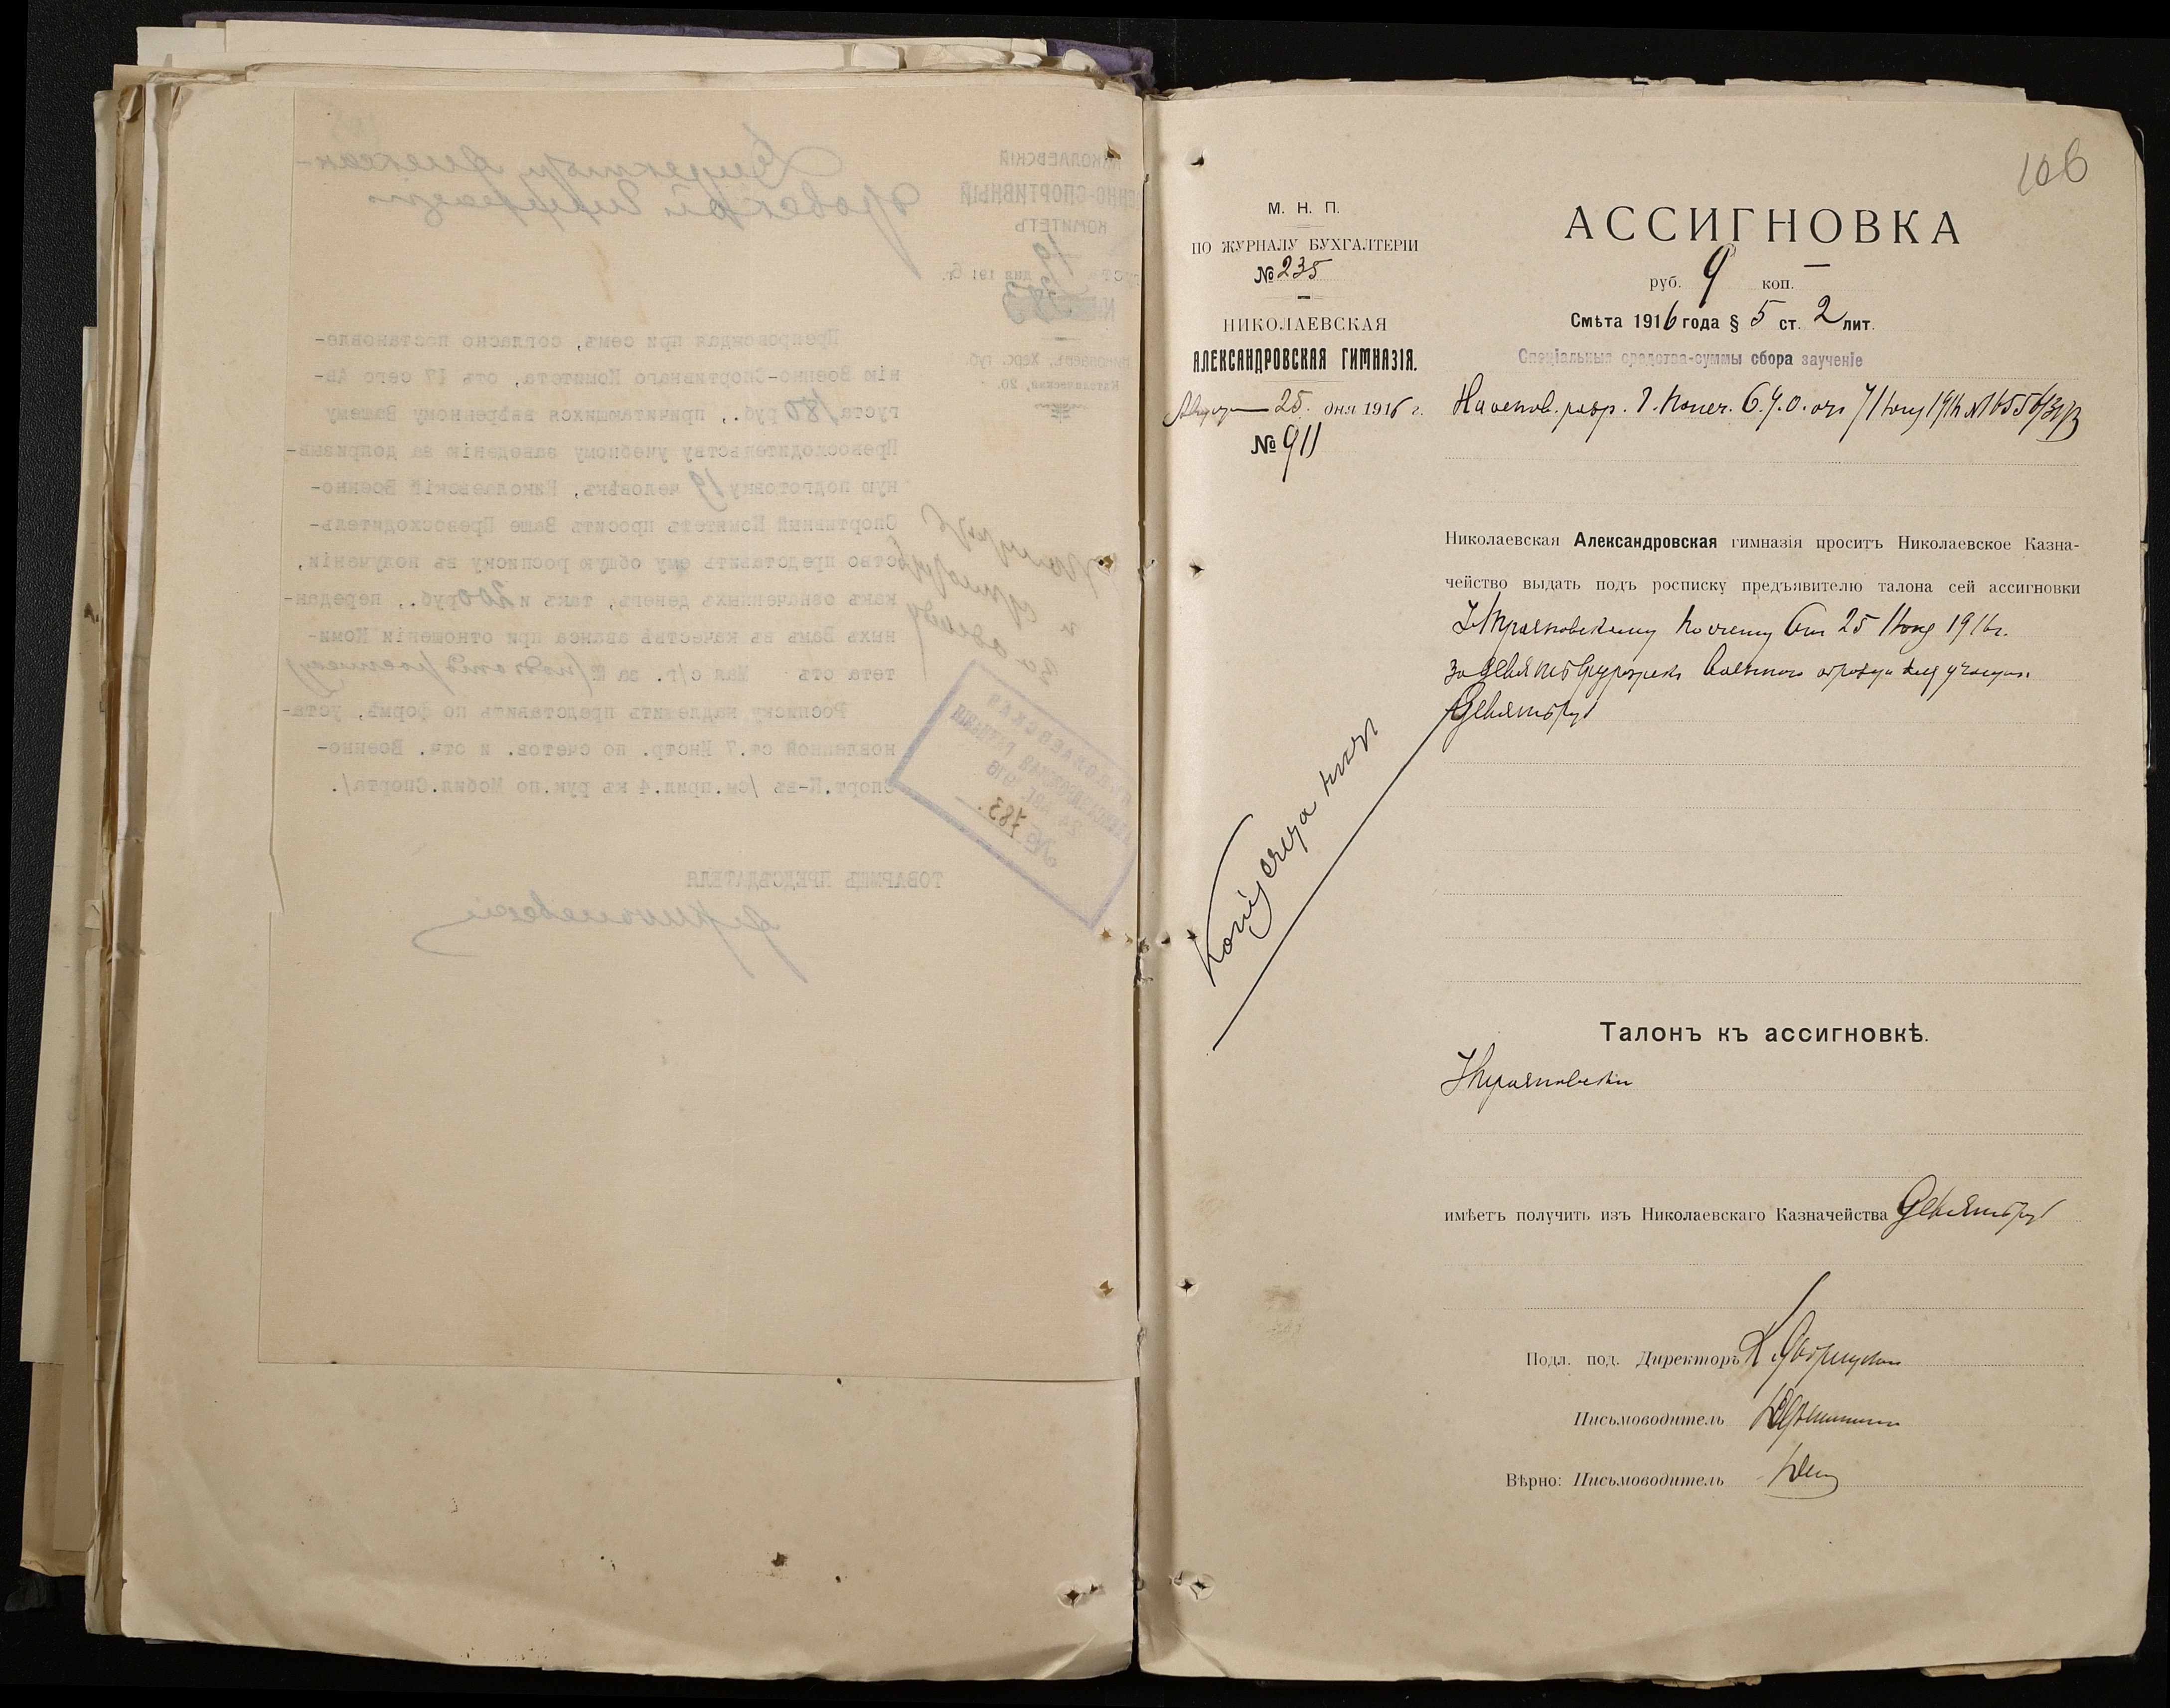 НИКОЛАЕВСКІЙ
ВОЕННО-СПОРТИВНЫЙ
КОМИТЕТЪ
19
дня 191 6 г.
№ 383
Николаевъ, Херс. губ.
Директору Алексан-
дровской Гимназіи
Препровождая при семъ, согласно постановле-
нію Военно-Спортивнаго Комитета, отъ 17 сего Ав-
густа 180 руб., причитающихся ввѣренному Вашему
Превосходительству учебному заведенію за допризыв-
ную подготовку 19 человѣкъ, Николаевскій Военно-
Спортивный Комитетъ проситъ Ваше Превосходитель-
ство представить ему общую росписку въ полученіи,
какъ означенныхъ денегъ, такъ и 200 руб., передан-
ныхъ Вамъ въ качествѣ аванса при отношеніи Коми-
тета отъ Мая с/г. за №
Росписку надлежитъ представить по формѣ, уста-
новленной ст.7 Инстр. по счетов. и отч. Военно-
Спорт.К-въ /см.прил.4 къ рук.по Мобил.Спорта/.
№ 783.
ТОВАРИЩЪ ПРЕДСѢДАТЕЛЯ
106
М. Н. П.
ПО ЖУРНАЛУ БУХГАЛТЕРІИ
№ 235
НИКОЛАЕВСКАЯ
АЛЕКСАНДРОВСКАЯ ГИМНАЗІЯ.
Августа 25 дня 1916 г.
№ 911
АССИГНОВКА
руб. 9 коп. —
Смѣта 1916 года § 5 ст. 2 лит.
Спеціальныя средства-суммы сбора заученіе
На основ. разр. Г. Попеч. О. У. О. отъ 7 1916
Николаевская Александровская гимназія проситъ Николаевское Казна-
чейство выдать подъ росписку предъявителю талона сей ассигновки
по счету отъ 25 1916 г.
за девять фуражекъ военнаго образца
Девять руб
Копія счета
Талонъ къ ассигновкѣ.
имѣетъ получить изъ Николаевскаго Казначейства Девять руб
Подл. под. Директоръ
Письмоводитель
Вѣрно: Письмоводитель